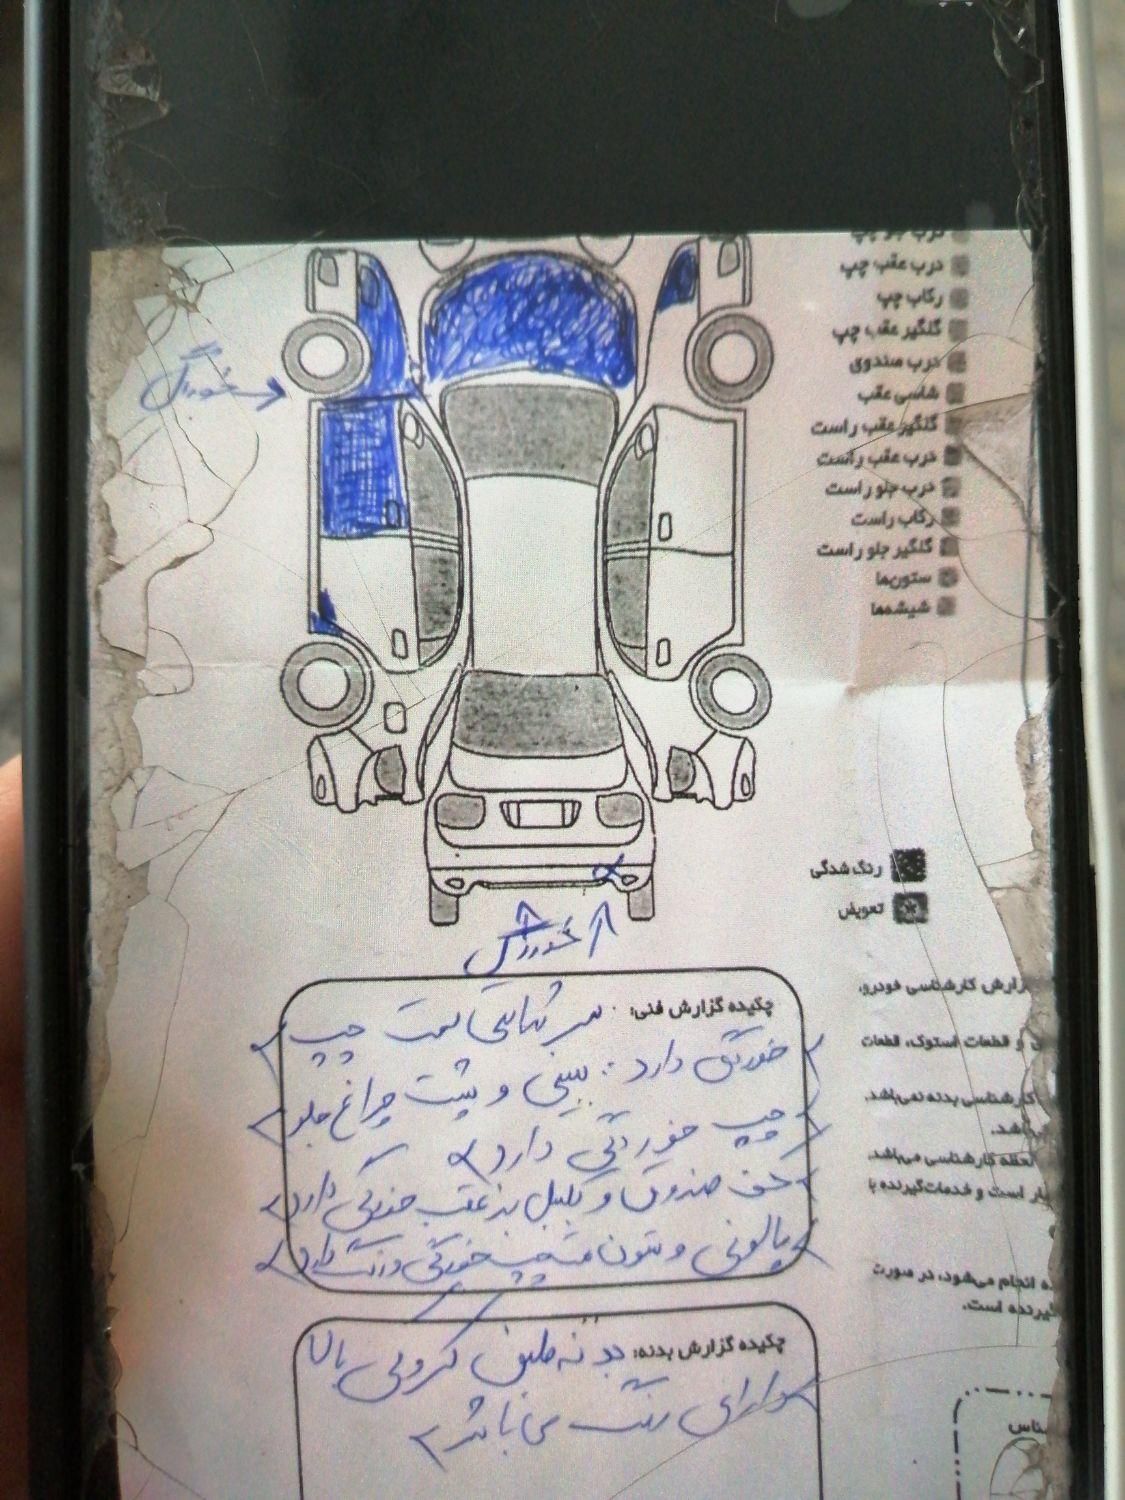 درب جلو چپ
درب عقب چپ
رکاب چپ
گلگیر عقب چپ
درب صندوق
شاسی عقب
گلگیر عقب راست
درب عقب راست
درب جلو راست
رکاب راست
گلگیر جلو راست
ستون‌ها
شیشه‌ها
خوردگی
رنگ شدگی
تعویض
خوردگی
چکیده گزارش فنی: سر شاسی سمت چپ
خوردگی دارد. سینی و پشت چراغ جلو
چپ خوردگی دارد
کف صندوق و پنل عقب خوردگی دارد
پالونی و ستون چپ خوردگی و رنگ دارد
چکیده گزارش بدنه: بدنه طبق کروکی بالا
دارای رنگ می باشد
گزارش کارشناسی خودرو،
و قطعات استوک، قطعات
کارشناسی بدنه نمی‌باشد.
لحظه کارشناسی می‌باشد.
است و خدمات‌گیرنده با
انجام می‌شود، در صورت
گیرنده است.